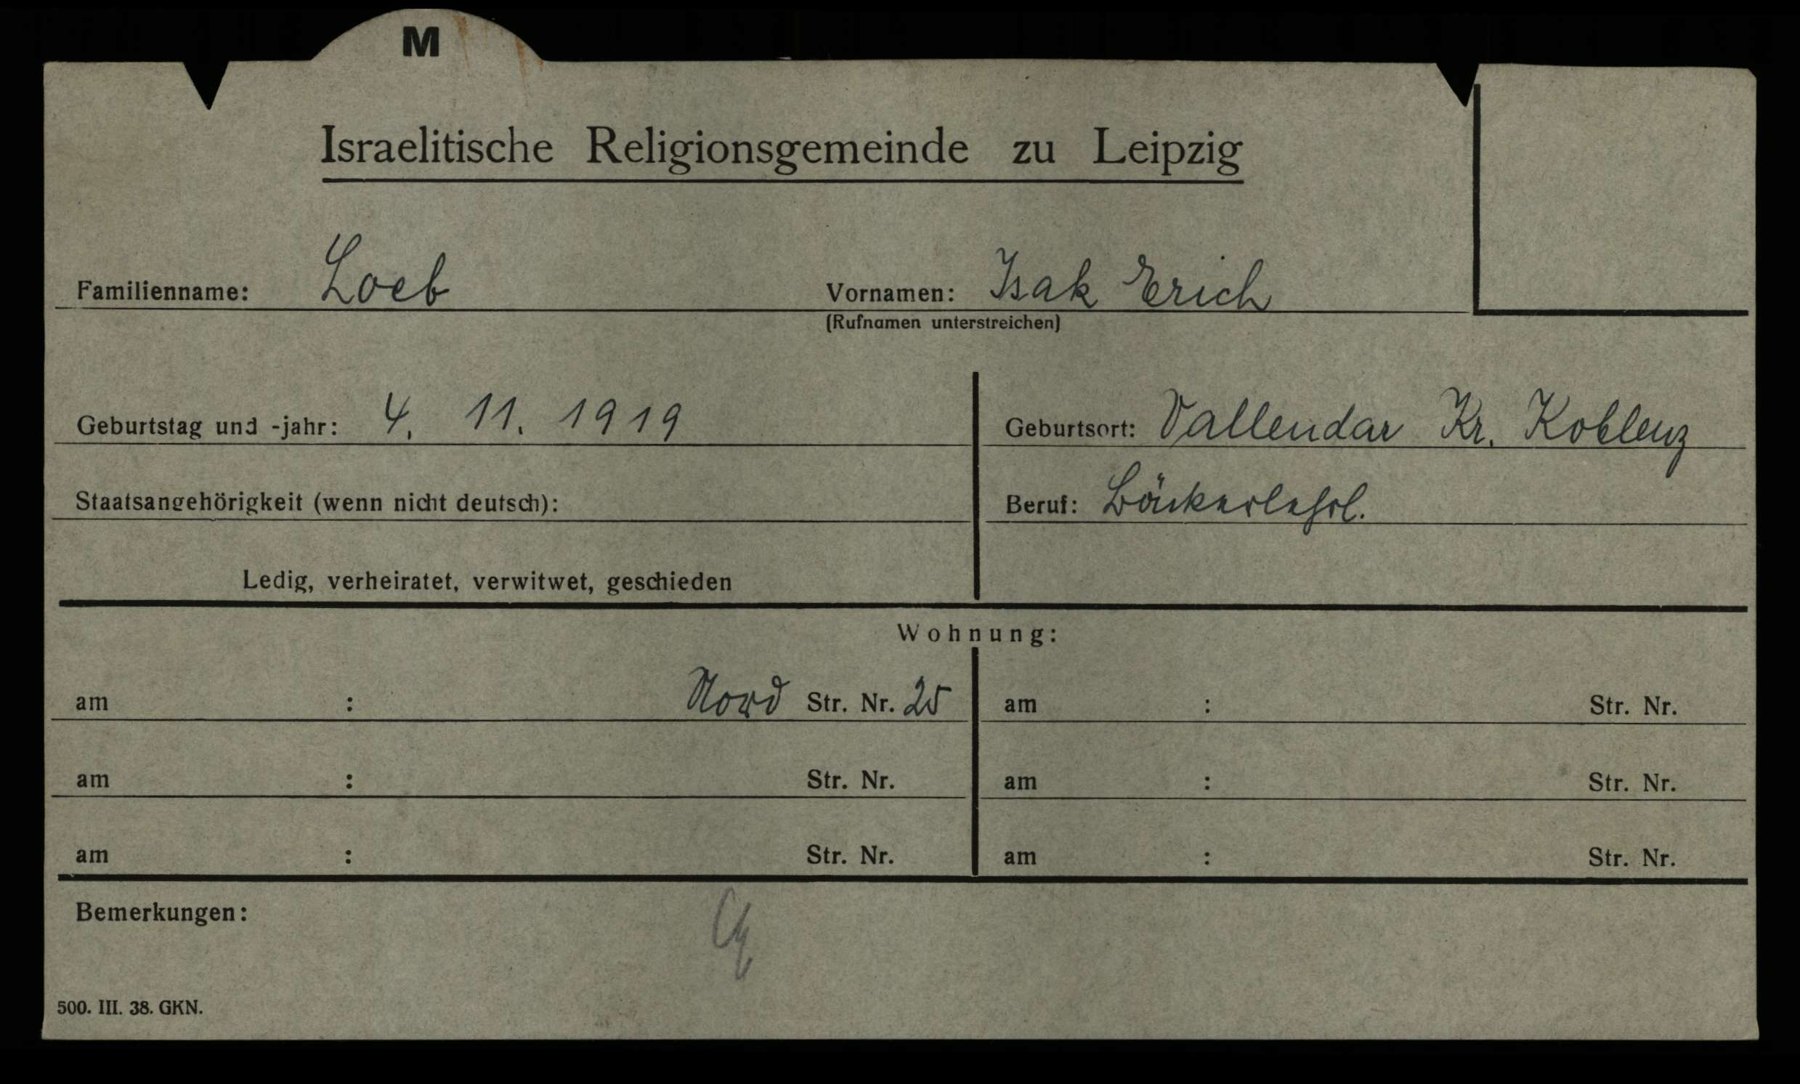 M
Israelitische Religionsgemeinde zu Leipzig
Familienname: Loeb Vornamen: Isak Erich
(Rufnamen unterstreichen)
Geburtstag und -jahr: 4. 11. 1919 Geburtsort: Vallendar Kr. Koblenz
Staatsangehörigkeit (wenn nicht deutsch): Beruf: Bäckerlehrl.
Ledig, verheiratet, verwitwet, geschieden
Wohnung:
am : Nord Str. Nr. 25 am : Str. Nr.
am : Str. Nr. am : Str. Nr.
am : Str. Nr. am : Str. Nr.
Bemerkungen:
500. III. 38. GKN.